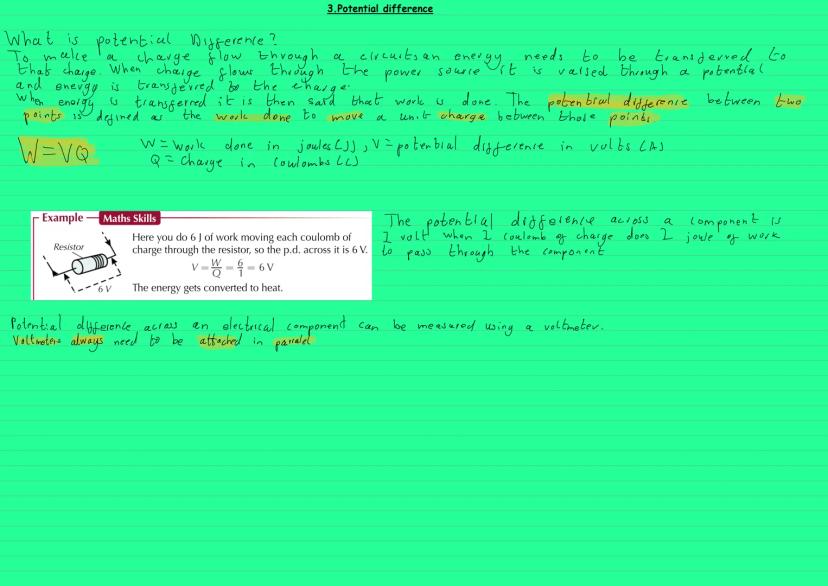 3.Potential difference
What is potential Difference?
To make a charge flow through a circuitsan energy needs to be transferred to
that charge. When charge flows through the power source it is raised through a potential
and energy is transferred to the charge.
When energy is transferred it is then said that work is done. The potential difference between two
points is defined as the work done to move a unit charge between those points.
W=VQ
W=Work done in joules(J), V=potential difference in volts (A)
Q=Charge in Coulombs (C)
Example Maths Skills
Resistor
6 V
Here you do 6 J of work moving each coulomb of
charge through the resistor, so the p.d. across it is 6 V.
V = W/Q = 6/1 = 6 V
The energy gets converted to heat.
The potential difference across a component is
1 volt when 1 coulomb of charge does 1 joule of work
to pass through the component
Potential difference across an electrical component can be measured using a voltmeter.
Voltmeters always need to be attached in parralel